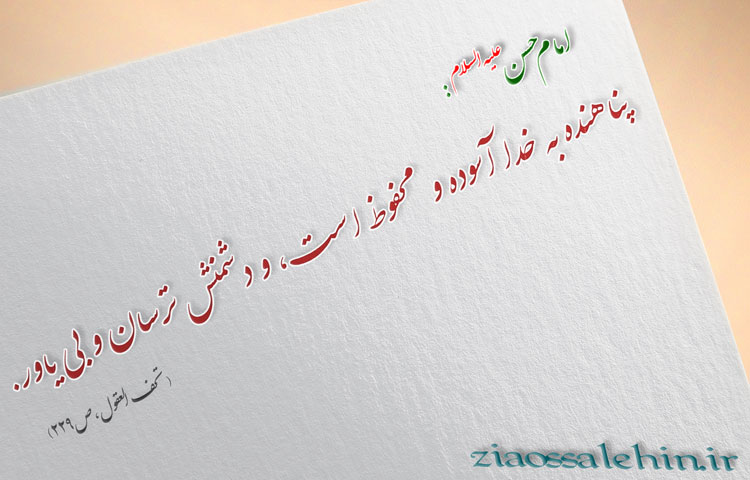 امام حسن علیه السلام :
پناهنده به خدا آسوده و محفوظ است، و دشمنش ترسان و بی یاور.
( تحف العقول، ص ۲۲۹)
ziaossalehin.ir